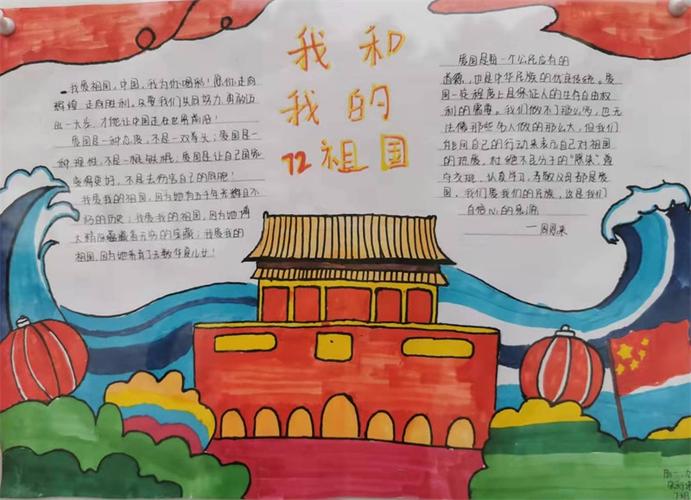 我和
我的
72祖国
我爱祖国，中国，我为你喝彩！愿你走向
辉煌，走向胜利。只要我们坚固努力，勇敢迈
出一大步，才能让中国走在世界前沿！
爱国是一种态度，不是一双拳头；爱国是一
种理性，不是一腔敏感；爱国是让自己国家
变得更好，不是去伤害自己的同胞！
我爱我的祖国，因为她有五千年幸
的历史；我爱我的祖国，因为她博
大精深蕴藏着无穷的宝藏；我爱我的
祖国，因为她养育了无数华夏儿女！
爱国是每一个公民应有的
道德，也是中华民族的优良传统。爱
国一定程度上是保证人的生存自由权
利的需要。我们做不了惊心，也无
法像那些伟人做的那么大，但我们
能用自己的行动来表示自己对祖国
的热爱，杜绝不良分子的
守交规，认真学习，孝敬父母都是爱
国，我们爱我们的民族，这是我们
自信心的泉源
——周恩来